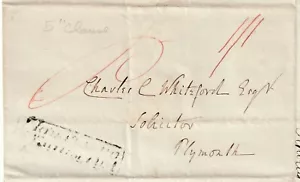 5" Clause
Charles C Whiteford Esqr
Solicitor
Plymouth